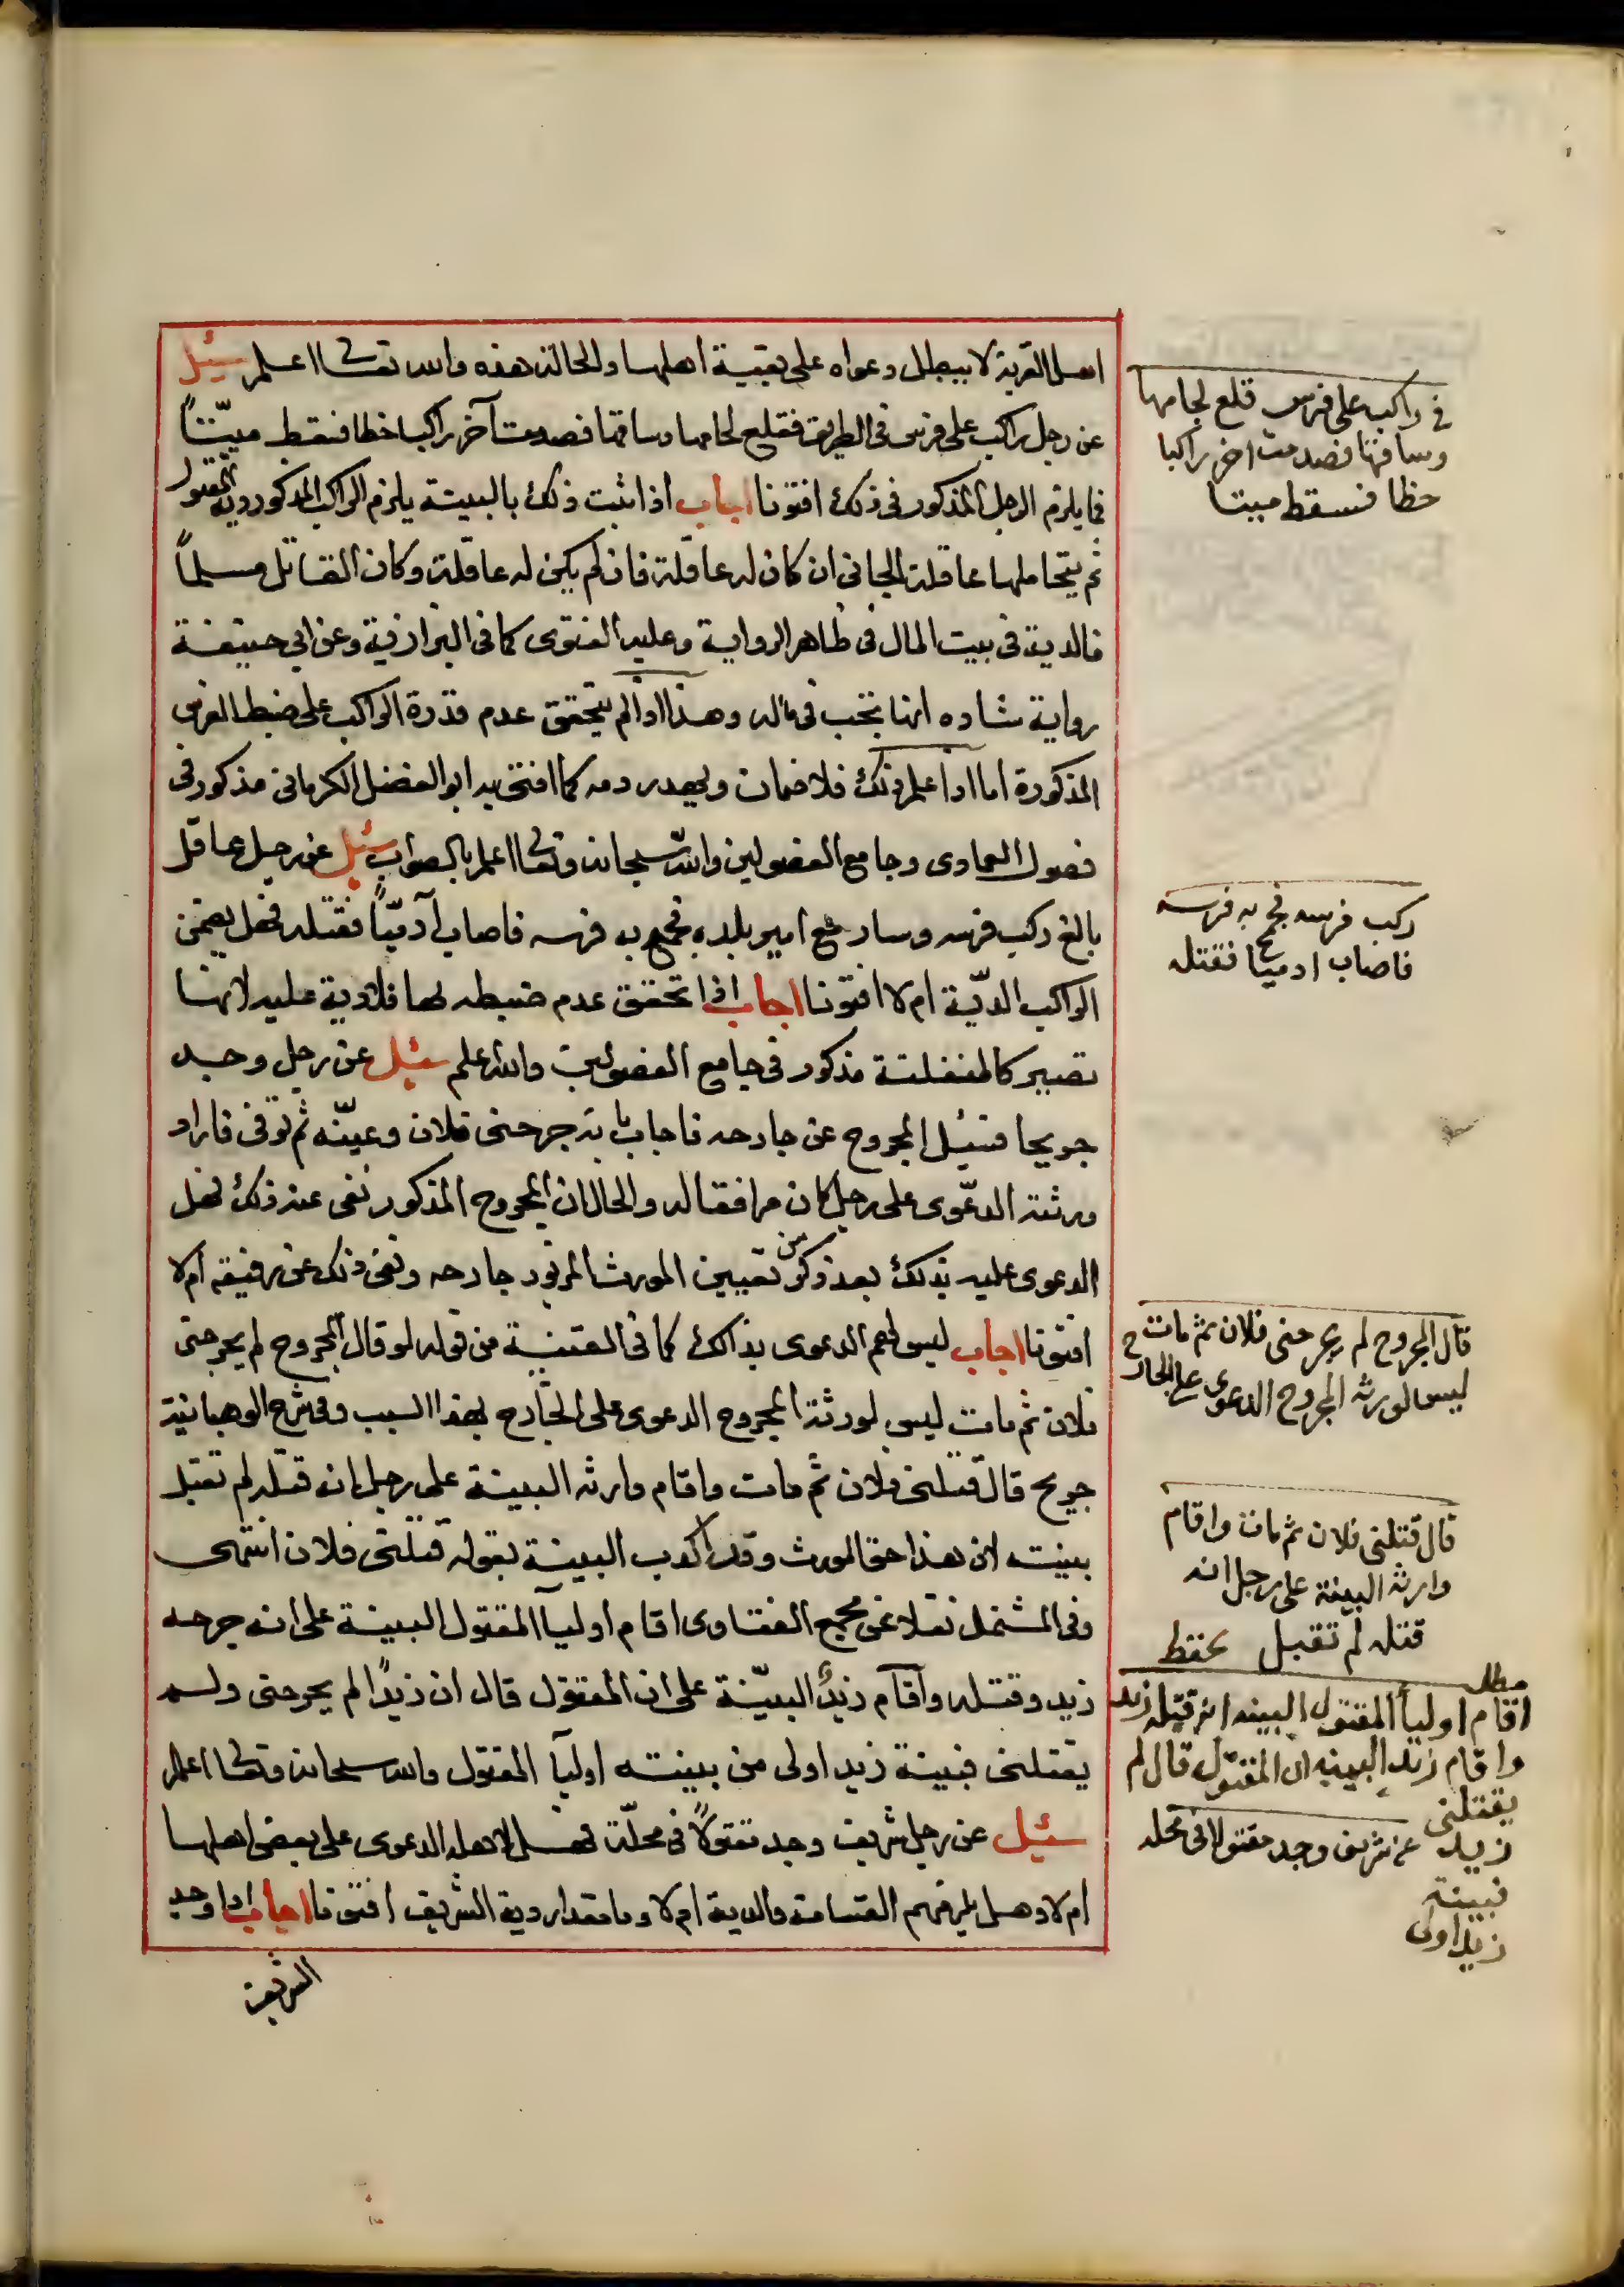 اهل القرية لا يبطل دعواه على بقية اهلها والحالة هذه والله تعالى اعلم سئل
عن رجل راكب على فرس فى الطريق فقلع لجامها وساقها فصدمت آخر راكبا خطا فسقط ميّتاً
فما يلزم الرجل المذكور فى ذلك افتونا اجاب اذا ثبت ذلك بالبينة يلزم الراكب المذكور دية المقتول
ثم يتحاملها عاقلة الجانى ان كان له عاقلة فان لم يكن له عاقلة وكان القاتل مسلماً
فالدية فى بيت المال فى ظاهر الرواية وعليه الفتوى كما فى البزازية وعن ابى حنيفة
رواية شاده انها تجب فى ماله وهذا اذا لم يتحقق عدم قدرة الراكب على ضبط الفرس
المذكورة اما اذا علم ذلك فلا ضمان ويهدر دمه كما افتى به ابو الفضل الكرمانى مذكور فى
فصول العمادى وجامع الفصولين والله سبحانه وتعالى اعلم بالصواب سئل عن رجل عاقل
بالغ ركب فرسه وسار مع امير بلده فجمح به فرسه فاصاب آدميّاً فقتله فهل يضمن
الراكب الديّة ام لا افتونا اجاب اذا تحقق عدم ضبطه لها فلا دية عليه لانها
تصير كالمنفلتة مذكور فى جامع الفصولين والله اعلم سئل عن رجل وجد
جريحا فسئل المجروح عن جارحه فاجاب بانه جرحنى فلان وعيّنه ثم توفى فاراد
ورثته الدعّوى على رجل كان مرافقا له والحال ان المجروح المذكور نفى عنه ذلك فهل
الدعوى عليه بذلك بعد ذكر من تعيين المورث المزبور جارحه ونفى ذلك عن رفيقه ام لا
افتونا اجاب ليس لهم الدعوى بذالك كما فى القنية من قوله لو قال المجروح لم يجرحنى
فلان ثم مات ليس لورثة المجروح الدعوى على الجارح بهذا السبب وفى شرح الوهبانية
جريح قال قتلنى فلان ثم مات واقام وارثه البينة على رجل انه قتله لم تقبل
بينته لان هذا حق المورث وقد اكذب البينة بقوله قتلنى فلان انتهى
وفى المشتمل نقلا عن مجمع الفتاوى اقام اوليآ المقتول البينة على انه جرحه
زيد وقتله واقام زيدٌ البيّنة على ان المقتول قال ان زيداً لم يجرحنى ولم
يقتلنى فبينة زيد اولى من بينته اوليآ المقتول والله سبحانه وتعالى اعلم
سئيل عن رجل شريف وجد مقتولاً فى محلّة فهل لاهله الدعوى على بعض اهلها
ام لا وهل يلزمهم القسامة والدية ام لا وما مقدار دية الشريف افتونا اجاب اذا وجد
الشريف
فى راكب على فرس قلع لجامها
وساقها فصدمت اخر راكبا
خطا فسقط ميتا
ركب فرسه فجمح به فرسه
فاصاب ادميا فقتله
قال المجروح لم يجرحنى فلان ثم مات
ليس لورثه المجروح الدعوى على الجارح
قال قتلنى فلان ثم مات واقام
وارثه البينة على رجل انه
قتله لم تقبل يحفظ
مطلب
اقام اوليأ المقتول البينه انه قتله زيد
واقام زيد البينه ان المقتول قال لم
يقتلنى
زيد
فبينة
زيد اولى
عن شريف وجد مقتولا فى محله